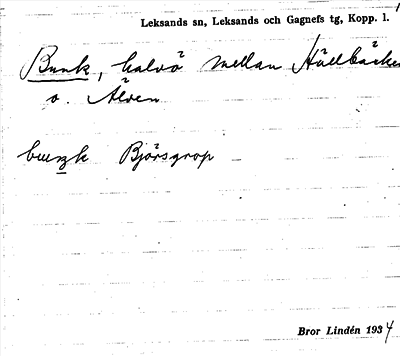 Leksands sn, Leksands och Gagnefs tg, Kopp. l.
Bunk, halvö mellan Hällbäcken
o. Älven
bunk Björsgrop
Bror Lindén 1934